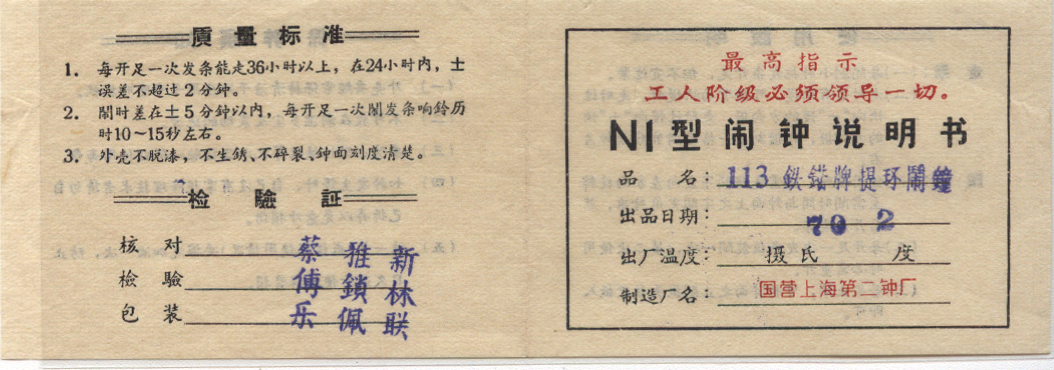 质量标准
1. 每开足一次发条能走36小时以上，在24小时内，±
误差不超过2分钟。
2. 閙时差在±5分钟以内，每开足一次閙发条响鈴历
时10～15秒左右。
3. 外壳不脱漆，不生锈、不碎裂、钟面刻度清楚。
检驗証
核对 蔡雅新
檢驗 傅鎖林
包装 乐佩联
最高指示
工人阶级必须领导一切。
N1型闹钟说明书
品名：113鉄錨牌提环鬧鐘
出品日期：70 2
出厂温度：摄氏 度
制造厂名：国营上海第二钟厂